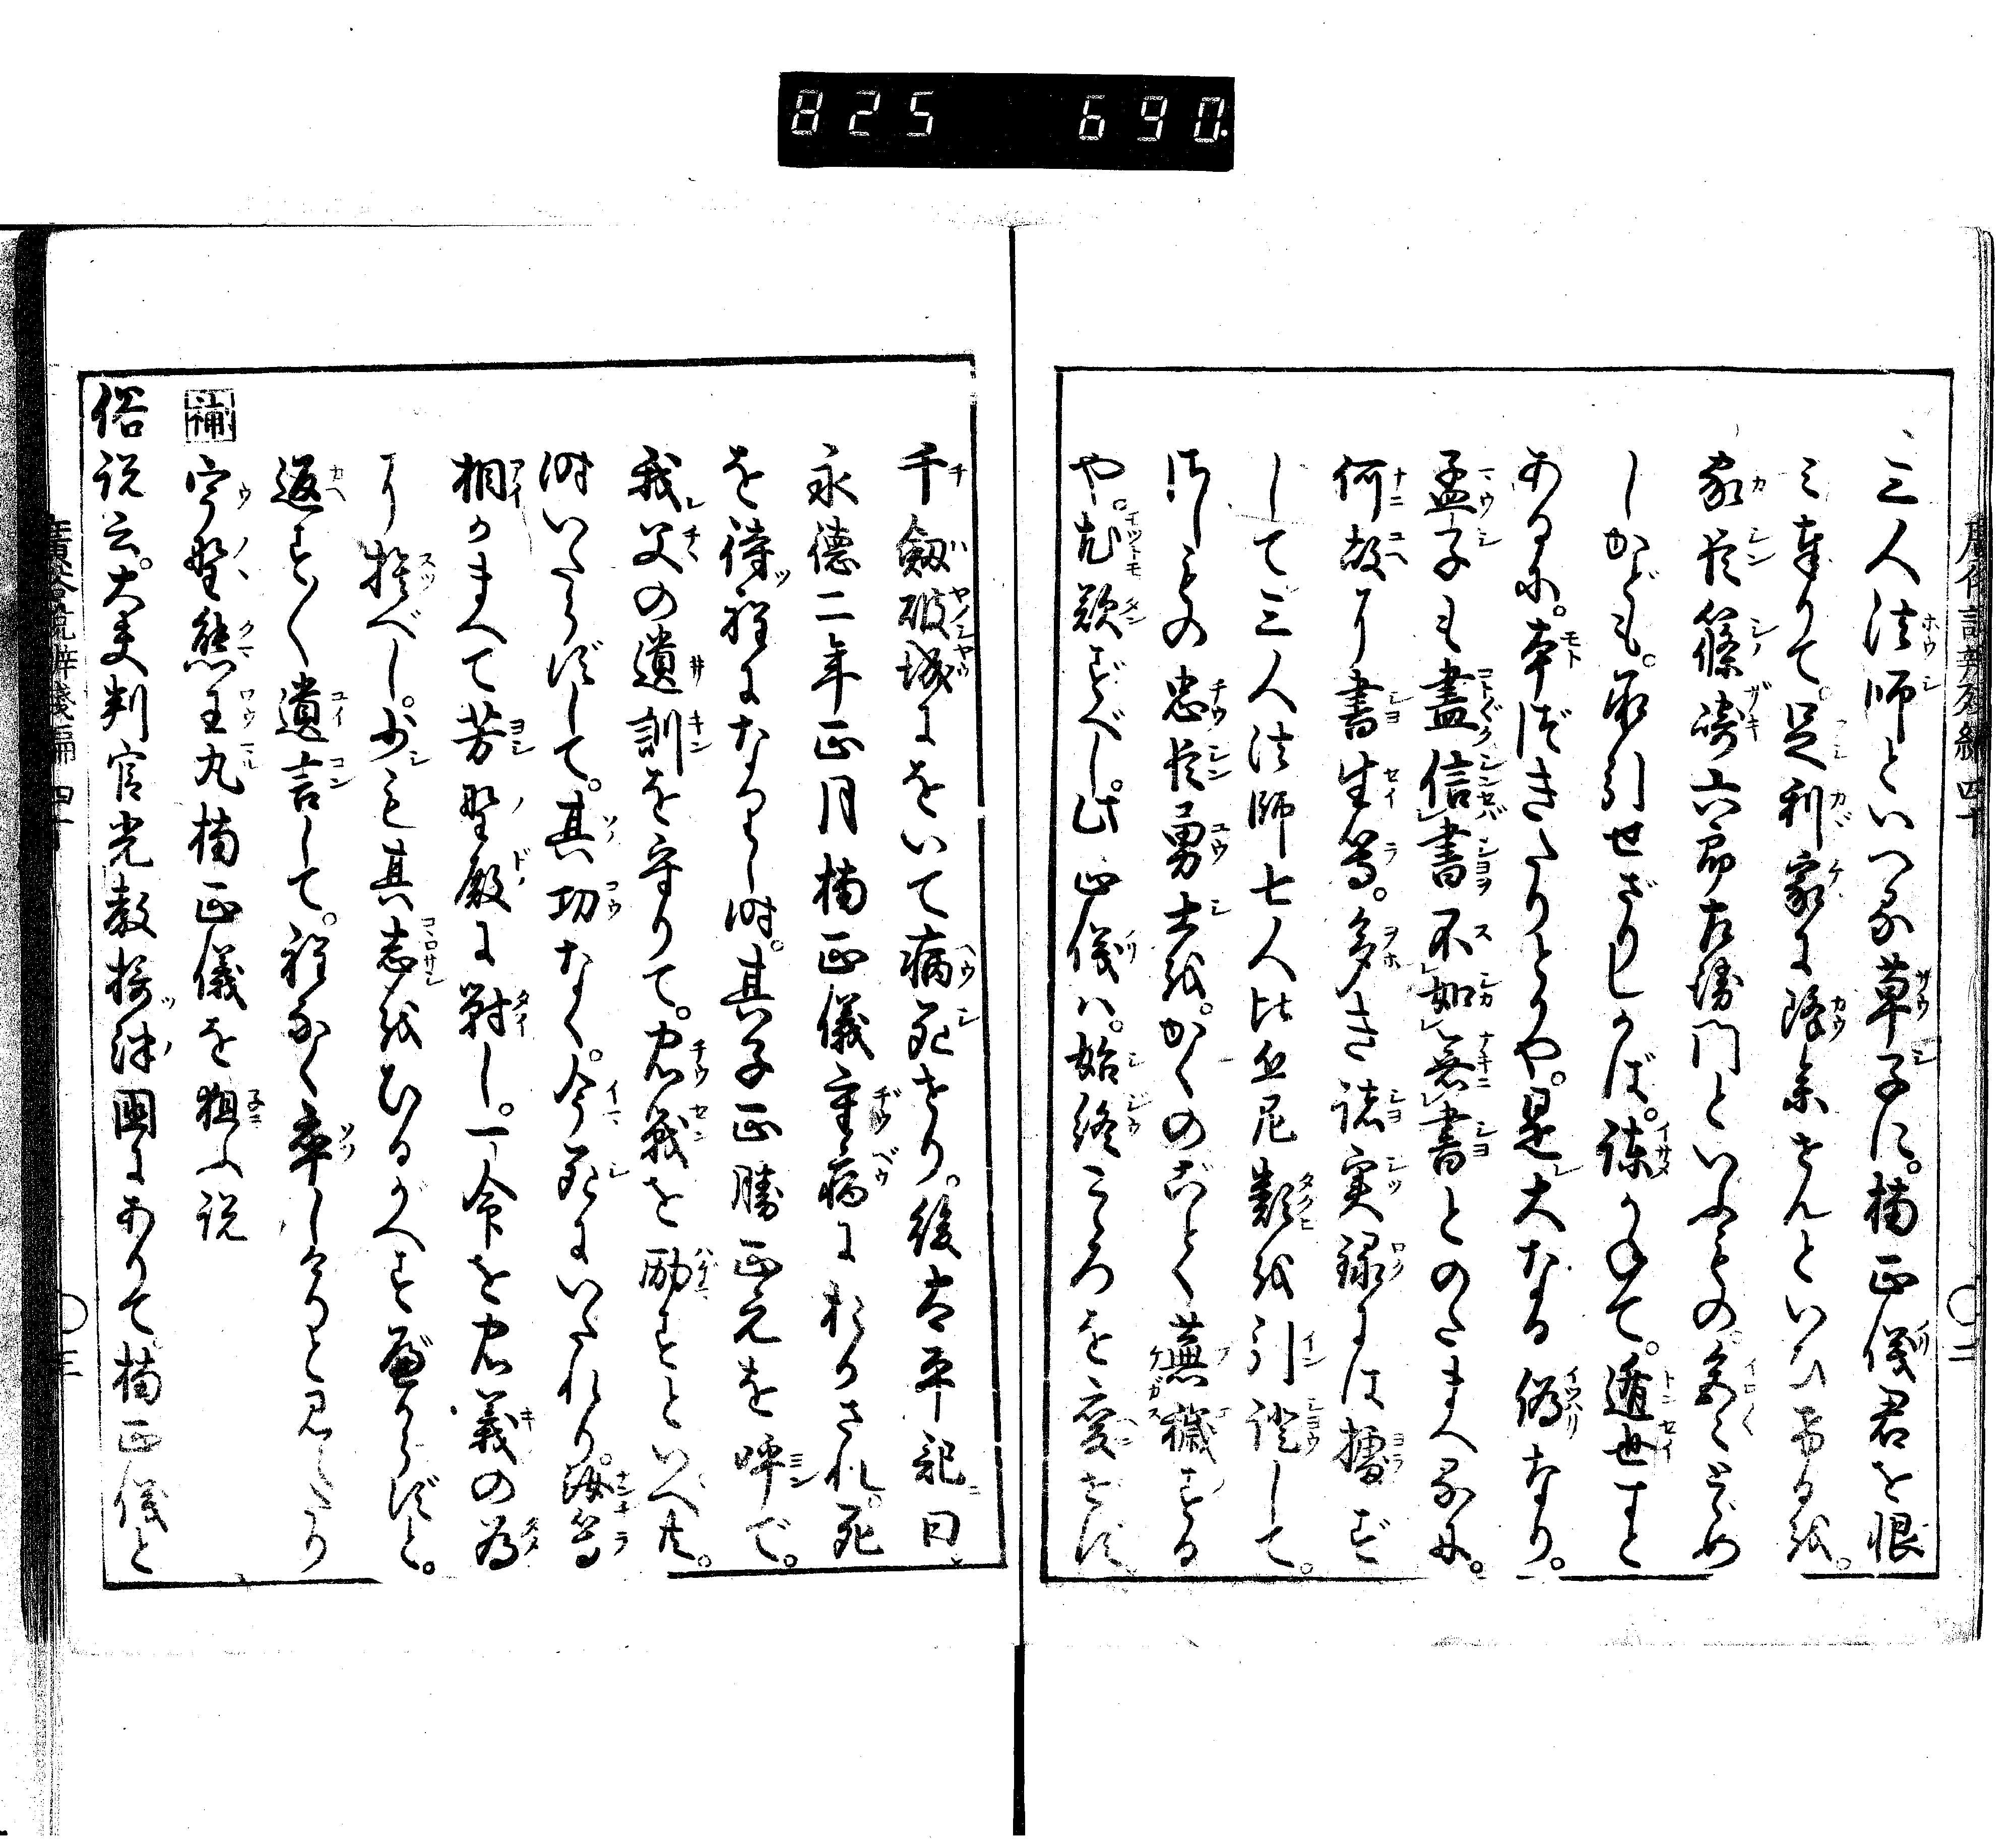 825 690.
三人法師といへる草子に。楠正儀君を恨
み奉りて。足利家に降参せんといひける。
家臣篠崎六郎左衛門といふもの。色々とゞめ
しかども。承引せざりしかば。諫かねて。遁世すと
あるに。本づきたりとかや。是大なる偽なり。
孟子も盡信書不如無書とのたまへるに。
何故に書生等。多き諸実録には據ず
して三人法師七人比丘尼類を引證して。
の忠臣勇士を。かくのごとく蕪穢する
や。尤歎ずべし。此正儀ハ。始終こゝろを変ぜず
千劔破城にをいて病死せり。後太平記曰、
永德二年正月楠正儀重病におかされ。死
を待程になりし時。其子正勝正元を呼で。
我父の遺訓を守りて。忠戦を励すといへ共。
時いたらずして。其功なく。今死にいたれり。汝等
相かまへて芳野殿に對し。一命を忠義の為
に捨べし。少も其志をひるがへすべからずと。
返すく遺言して。程なく卒しけると見えたり
補 宇野熊王丸楠正儀を狙ふ説
俗説云。大夫判官光教摂津國にありて。楠正儀と
廣益俗説弁残編 四十 〇三